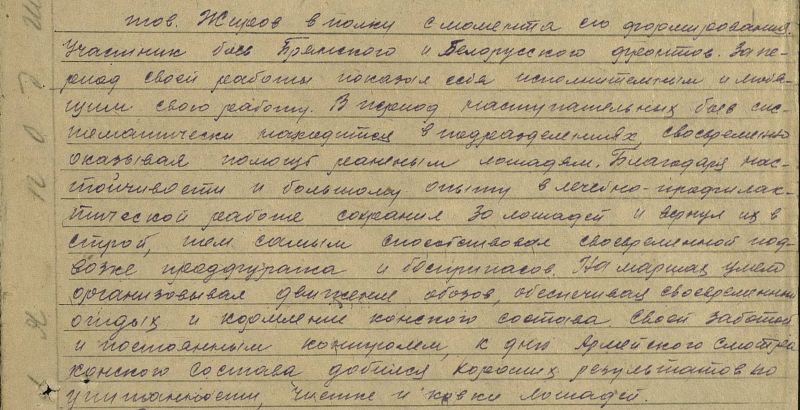 тов. Жиров в полку с момента его формирования.
Участник боев Брянского и Белорусского фронтов. За пе-
риод своей работы показал себя исполнительным и любя-
щим свою работу. В период наступательных боев сис-
тематически находится в подразделениях, своевременно
оказывая помощь раненым лошадям. Благодаря нас-
тойчивости и большому опыту в лечебно-профилак-
тической работе сохранил 30 лошадей и вернул их в
строй, тем самым способствовал своевременной под-
возке продфуража и боеприпасов. На маршах умело
организовывал движение обозов, обеспечивая своевременный
отдых и кормление конского состава. Своей заботой
и постоянным контролем, к дню Армейского смотра
конского состава добился хороших результатов по
упитанности, чистке и ковки лошадей.